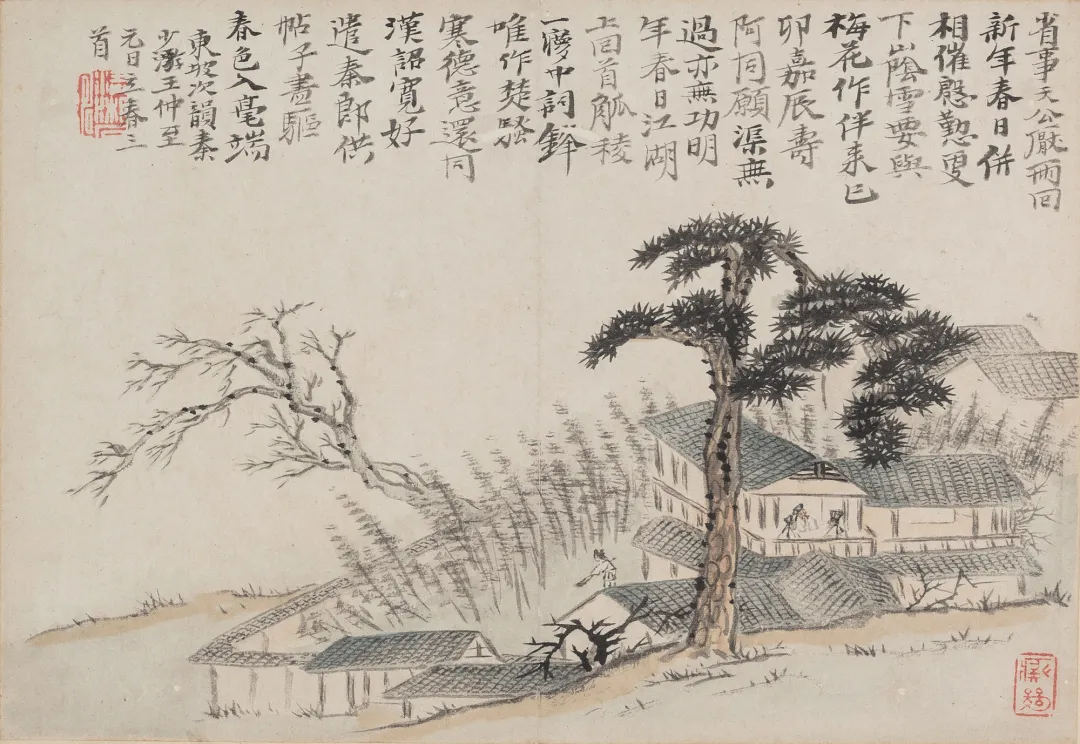 省事天公厭兩回
新年春日併
相催慇懃更
下山蔭雪要與
梅花作伴來已
卯嘉辰壽
阿同願渠無
過亦無功明
年春日江湖
上回首觚稜
一夢中詞鋒
唯作楚騷
寒德意還同
漢詔寬好
遣秦郎供
帖子盡驅
春色入毫端
東坡次韻秦
少游王仲至
元日立春三
首